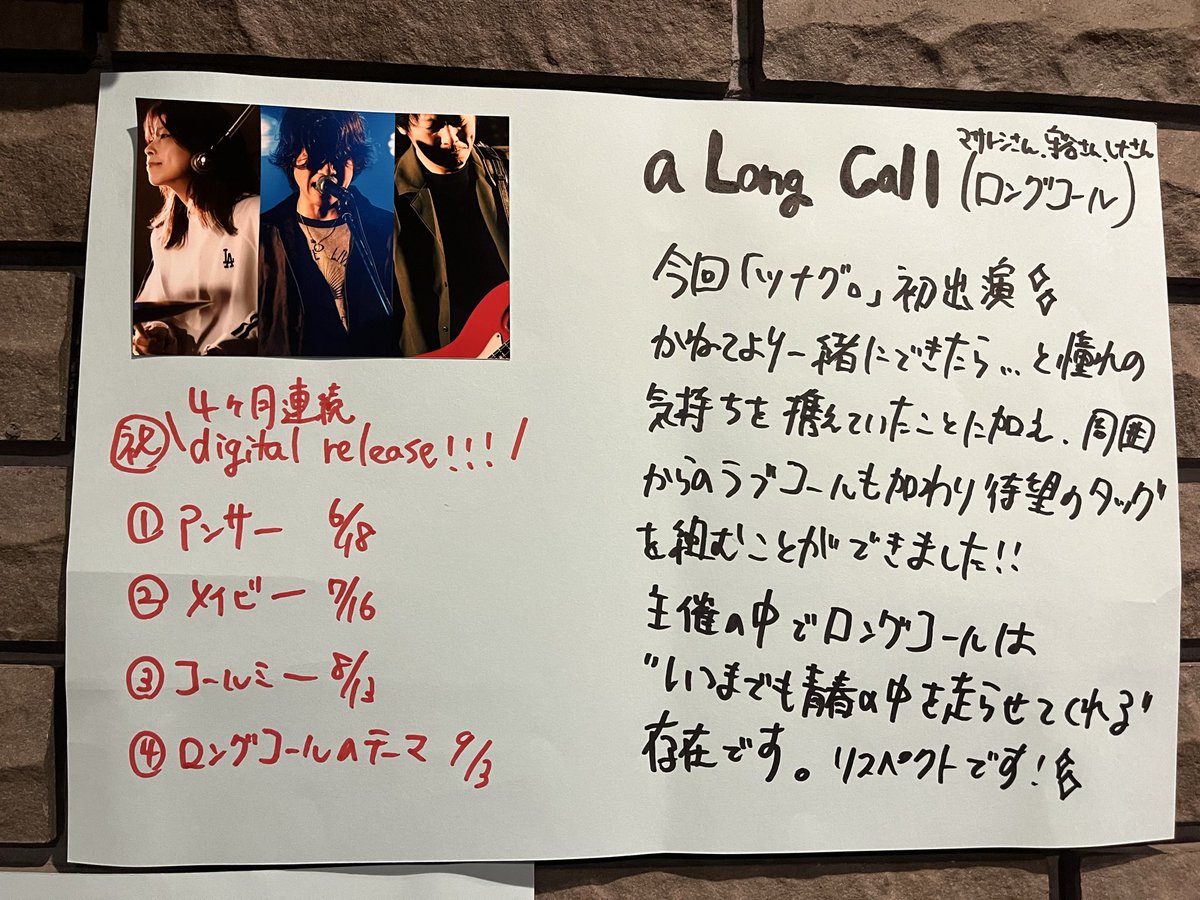 LA
㊗ \ 4ヶ月連続
digital release!!! /
① アンサー 6/18
② メイビー 7/16
③ コールミー 8/13
④ ロングコールのテーマ 9/3
マサトシさん、さん、しださん
a Long Call (ロングコール)
今回「ツナグ。」初出演
かねてより一緒にできたら...と憧れの
気持ちを携えていたことに加え、周囲
からのラブコールも加わり待望のタッグ
を組むことができました!!
主催の中でロングコールは
"いつまでも青春の中を走らせてくれる"
存在です。リスペクトです!